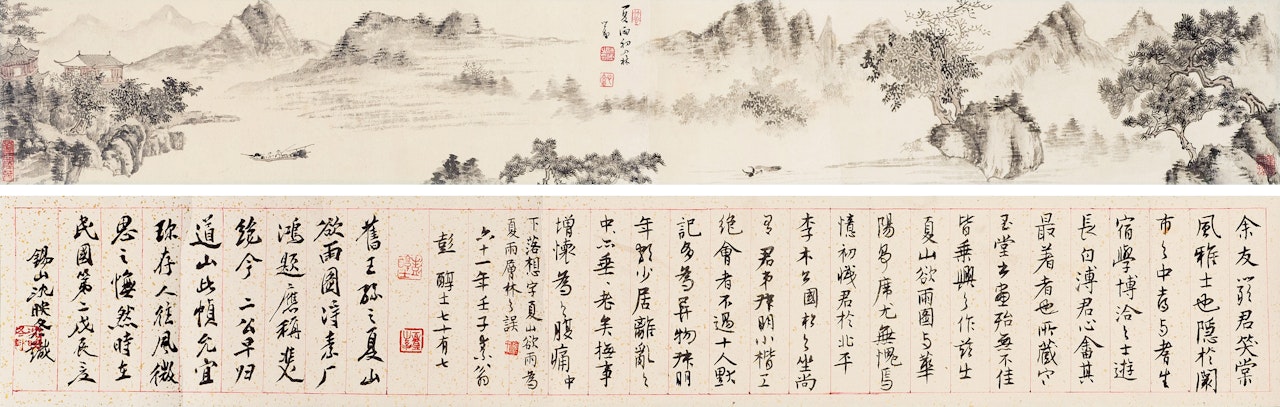 夏雨
余友嚴君笑棠
風雅士也隱於闤
市之中好與耆生
宿學博洽之士遊
長白溥君心畬其
最著者也所藏寒
玉堂書畫殆無不佳
皆乘興之作茲
夏山欲雨圖與華
陽尤無愧焉
憶初識君於北平
李木公園邸之坐尚
有君弟叔明小楷工
絕會者不過十人默
記多為異物叔明
年少居離亂之
中亦垂老矣極事
增懷為之腹痛中
下落想字夏山欲雨為
夏雨層林之誤
六十一年壬子素翁
彭醇士七十有七
舊王孫之夏山
欲雨圖詩素厂
鴻題應稱雙
絕今二公早归
道山此幀允宜
珍存人往風微
思之憮然時在
民國第二戊辰立
錫山沈映冬識